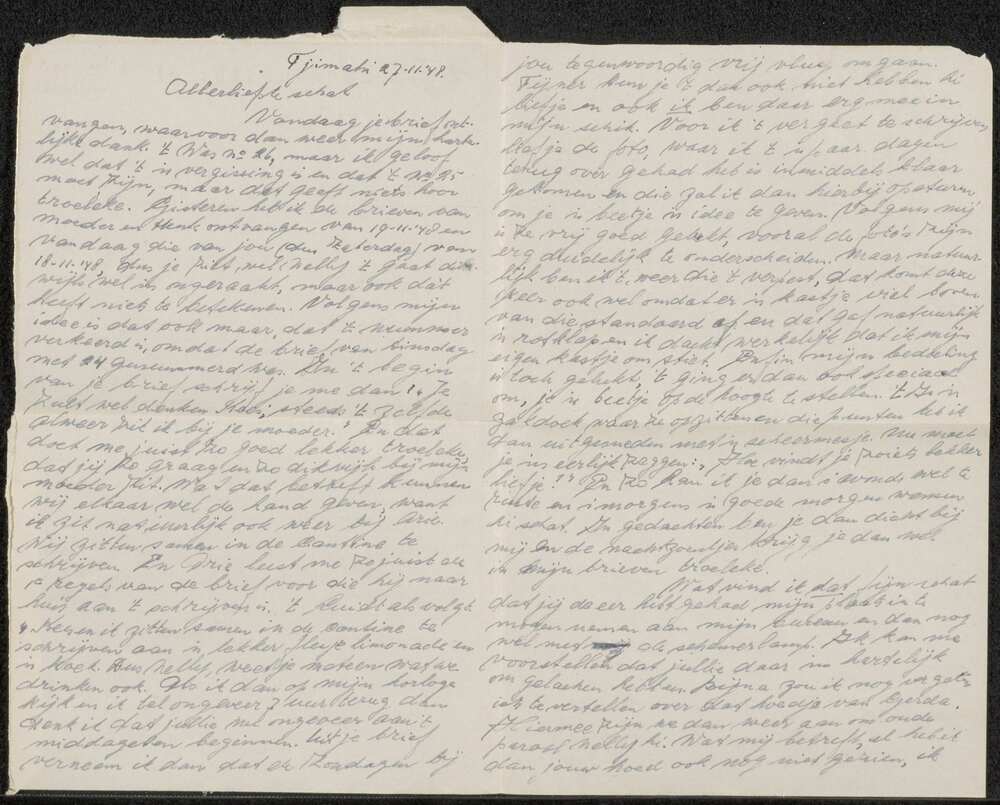 Tjimahi 27-11-'48.
Allerliefste schat
Vandaag je brief ont-
vangen, waarvoor dan weer mijn harte-
lijke dank. 't Was no 26, maar ik geloof
wel dat 't 'n vergissing is en dat 't no 25
moet zijn, maar dat geeft niets hoor
troeleke. Gisteren heb ik de brieven van
moeder en Henk ontvangen van 19-11-'48 en
vandaag die van jou (den Zaterdag) van
18-11-'48, dus je ziet, wel Nelly 't gaat dik-
wijls wel ongeraakt, maar ook dat
heeft niets te betekenen. Volgens mijn
idee is dat ook maar, dat 't nummer
verkeerd is, omdat de brief van dinsdag
met 24 genummerd was. In 't begin
van je brief schrijf je me dan: "Je
zult wel denken steeds 't zelfde
alweer zit ik bij je moeder." En dat
doet me juist zo goed lekker troeleke,
dat jij zo graag en zo dikwijls bij mijn
moeder zit. Wat dat betreft kunnen
wij elkaar wel de hand geven, want
ik zit natuurlijk ook weer bij
Wij zitten samen in de cantine te
schrijven. En Drie leest me zojuist de
regels van de brief voor die hij naar
huis aan 't schrijven is. 't Luidt als volgt
en ik zitten samen in de cantine te
schrijven aan 'n lekker flesje limonade en
'n koek. Dus Nelly, weet je meteen wat we
drinken ook. Als ik dan op mijn horloge
kijk en ik tel ongeveer 7 uur terug dan
denk ik dat jullie nu ongeveer aan 't
middageten beginnen. Uit je brief
verneem ik dan dat de Zondagen bij
jou tegenwoordig vrij vlug omgaan.
Fijner kun je 't dan ook niet hebben hè
liefje en ook ik ben daar erg mee in
mijn schik. Voor ik 't vergeet te schrijven
liefje de foto, waar ik 't 'n paar dagen
terug over gehad heb is inmiddels klaar
gekomen en die zal ik dan hierbij opsturen
om je 'n beetje 'n idee te geven. Volgens mij
is ze vrij goed gelukt, vooral de foto's zijn
erg duidelijk te onderscheiden. Maar natuur-
lijk ben ik 't weer die 't verpest, dat komt deze
keer ook wel omdat er 'n kastje viel boven
van die standaard af en dat gaf natuurlijk
'n rotklap en ik dacht werkelijk dat ik mijn
eigen kastje om stiet. Enfin mijn bedoeling
is toch gelukt, 't ging er dan ook speciaal
om, je 'n beetje op de hoogte te stellen. 't Is 'n
zakdoek waar ze op zitten en die punten heb ik
dan uitgesneden met 'n scheermesje. Nu moet
je ins eerlijk zeggen: "Hoe vindt je zoiets lekker
liefje?" En zo kan ik je dan 's avonds wel te
ruste en 's morgens 'n goede morgen wensen
hè schat. In gedachten ben je dan dicht bij
mij en de nachtzoentjes krijg je dan wel
in mijn brieven troeleke.
Wat vind ik dat fijn schat
dat jij de eer hebt gehad, mijn plaats in te
mogen nemen aan mijn bureau en dan nog
wel met de schemerlamp. Ik kan me
voorstellen dat jullie daar ins hartelijk
om gelachen hebben. Bijna zou ik nog vergeten
iets te vertellen over dat hoedje van Gerda.
Hiermee zijn we dan weer aan om oude
Nelly hè. Wat mij betreft, al heb ik
dan jouw hoed ook nog niet gezien, ik